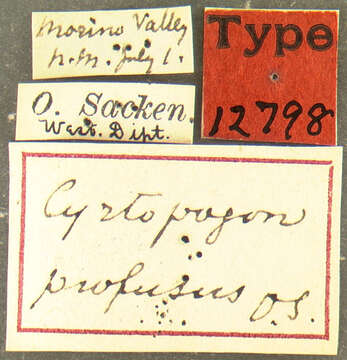 Morino Valley
n.m. July 1.
Type
12798
O. Sacken.
West. Dipt.
Cyrtopogon
profusus O.S.